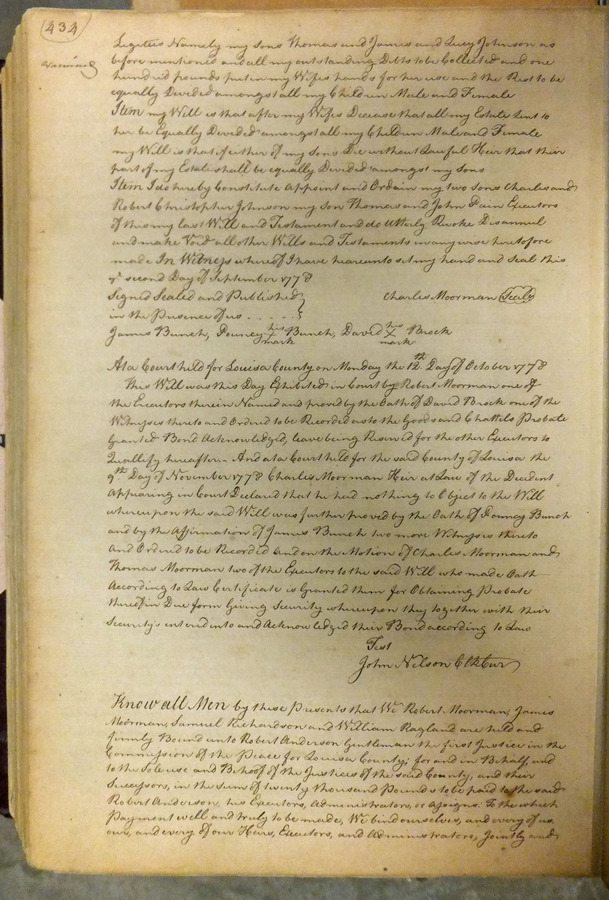 434
Legatees Namely my sons Thomas and James and Lucy Johnson as
before mentioned and all my outstanding Debts to be Collected and one
hundred pounds put in my Wifes hands for her use and the Rest to be
equally Devided amongst all my Children Male and Female
Item my Will is that after my Wifes Decease that all my Estate Lent to
her be Equally Devided amongst all my Children Male and Female
my Will is that if either of my sons Die without Lawful Heir that their
part of my Estate shall be equally Devided amongst my sons
Item I do hereby Constitute Appoint and Ordain my two sons Charles and
Robert Christopher Johnson my son Thomas and John Pain Executors
of this my last Will and Testament and do Utterly Revoke Disannul
and make Void all other Wills and Testaments in any wise heretofore
made In Witness whereof I have hereunto set my hand and Seal this
second Day of September 1778
Signed Sealed and Published
Charles Moorman Seal
in the presence of us
James Bunch, Pouncy his X mark Bunch, David his X mark Brock
At a Court held for Louisa County on Monday the 12th Day of October 1778
This Will was this Day Exhibited in Court by Robert Moorman one of
the Executors therein Named and proved by the Oath of David Brock one of the
Witnesses thereto and Ordered to be Recorded as to the Goods and Chattels Probate
granted Bond Acknowledged, leave being Reserved for the other Executors to
Quallify hereafter. And at a Court held for the said County of Louisa the
9th Day of November 1778 Charles Moorman Heir at Law of the Decedent
Appearing in Court Declared that he had nothing to Object to the Will
whereupon the said Will was further proved by the Oath of Pouncy Bunch
and by the Affirmation of James Bunch two more Witnesses thereto
and Ordered to be Recorded and on the Motion of Charles Moorman and
Thomas Moorman two of the Executors to the said Will who made Oath
According to Law Certificate is Granted them for Obtaining Probate
thereof in Due form Giving Security whereupon they together with their
Security's entered into and Acknowledged their Bond according to Law
Test
John Nelson Clk Cur
Know all Men by these Presents that We Robert Moorman, James
Moorman, Samuel Richardson and William Ragland are held and
firmly Bound unto Robert Anderson Gentleman the first Justice in the
Commission of the Peace for Louisa County, for and in Behalf, and
to the Sole use and Behoof of the Justices of the said County, and their
Successors, in the sum of twenty thousand Pounds to be paid to the said
Robert Anderson, his Executors, Administrators, or Assigns. To the which
Payment well and truly to be made, We bind ourselves, and every of us
our, and every of our Heirs, Executors, and Administrators, Jointly and